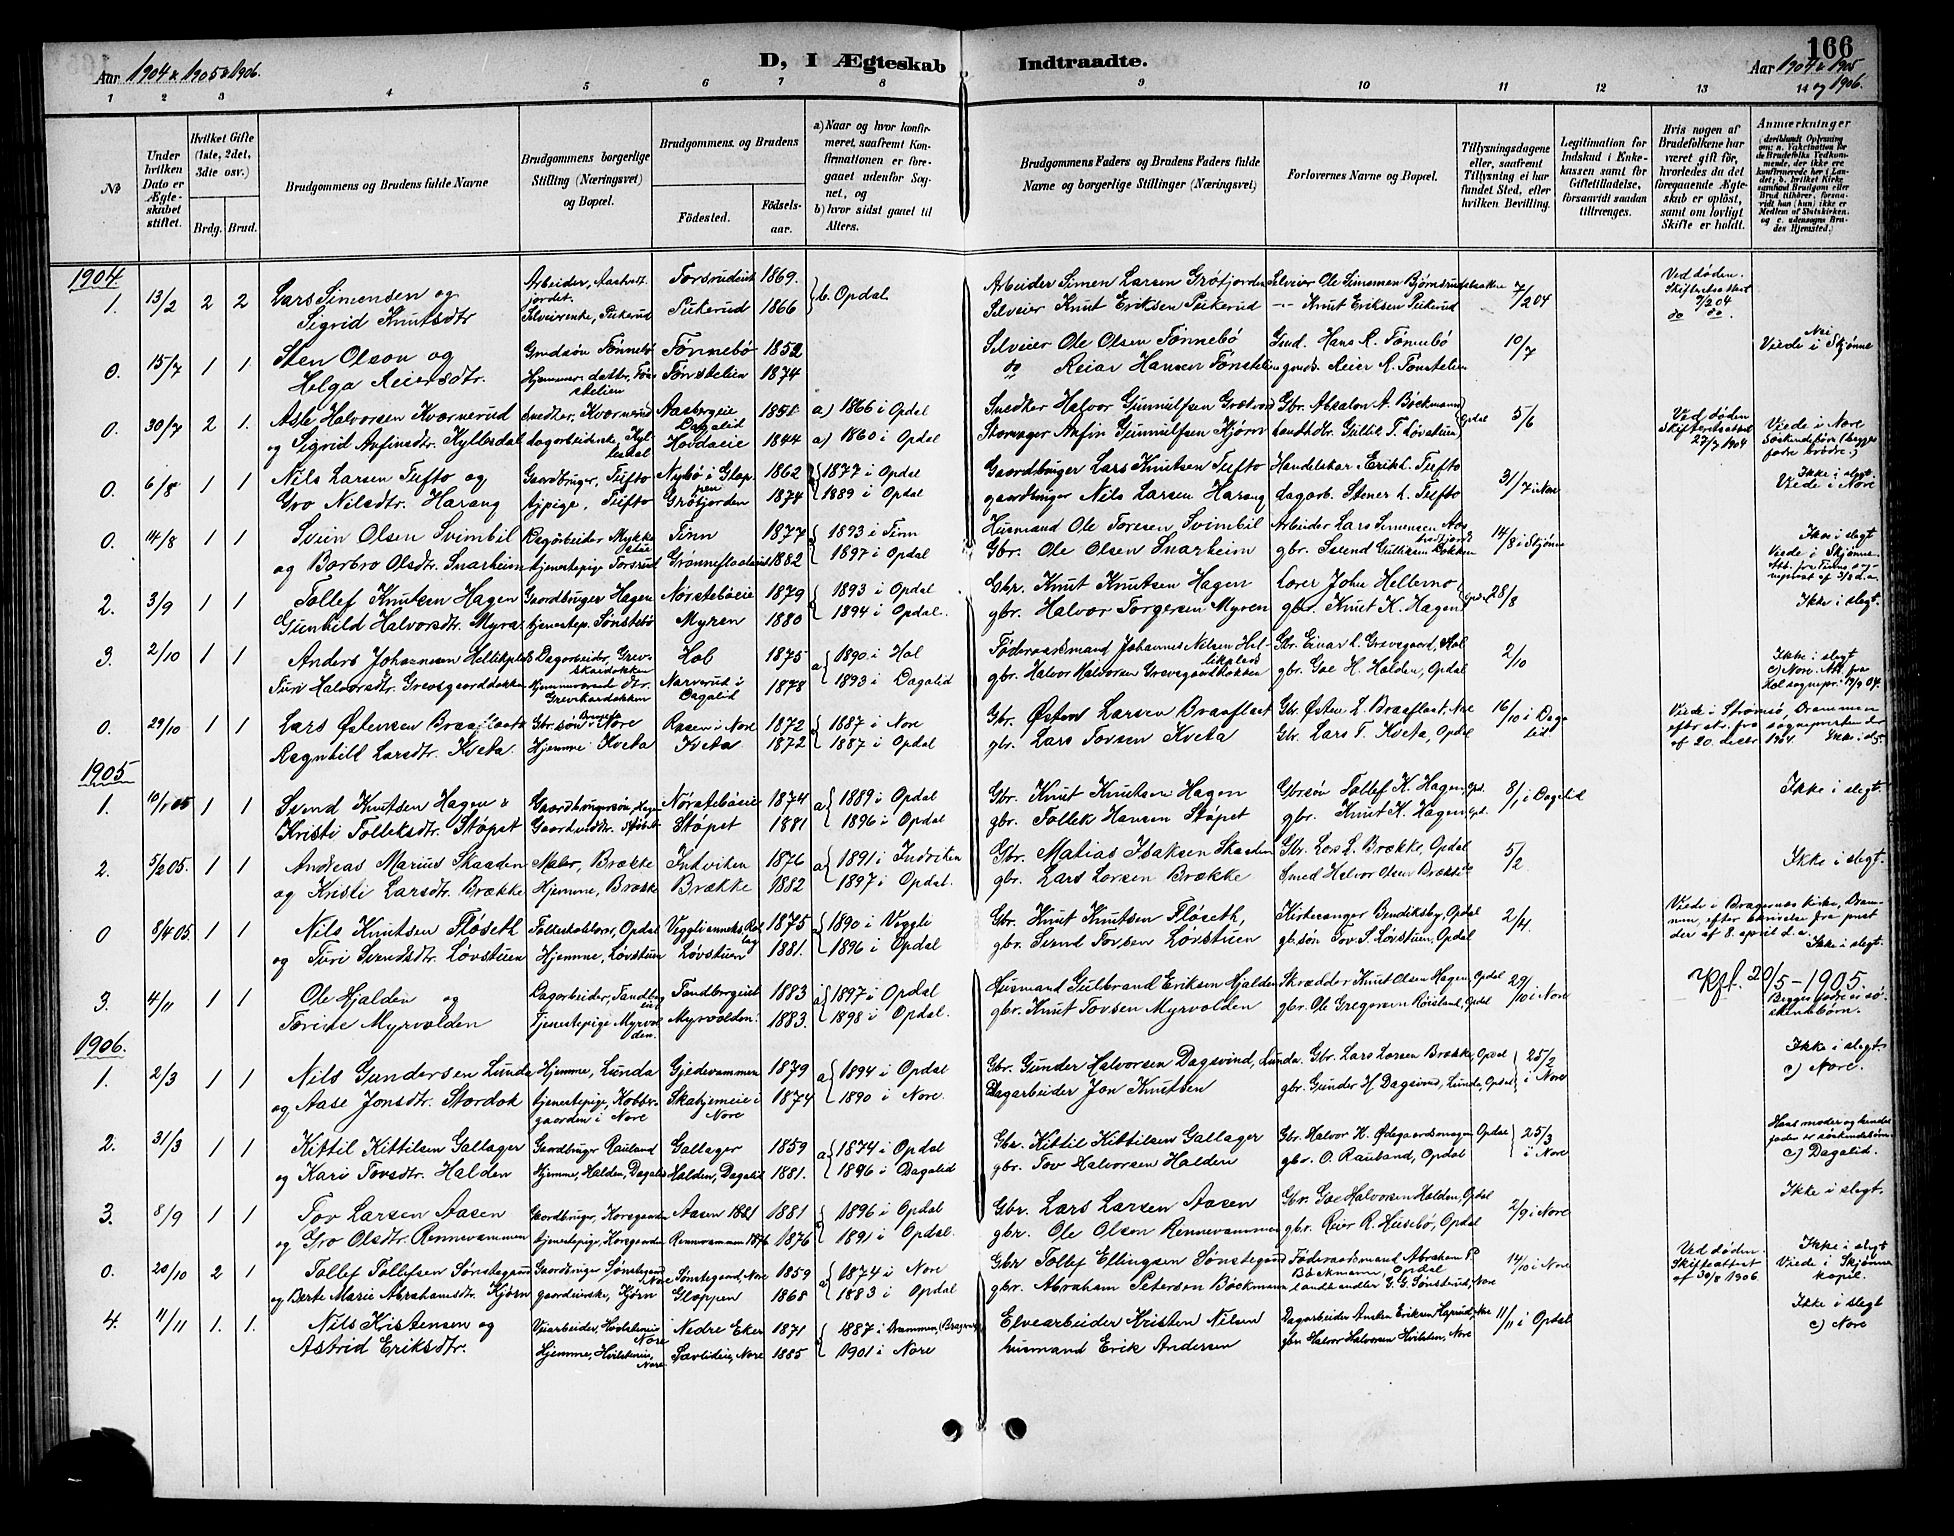 166
Aar 1904 & 1905 & 1906.
D, I Ægteskab
Indtraadte.
Aar 1904 & 1905 og 1906.
1 2 3 4 5 6 7 8 9 10 11 12 13 14
№
Under hvilken Dato er Ægteskabet stiftet.
Hvilket Gifte (1ste, 2det, 3die osv.)
Brdg. Brud.
Brudgommens og Brudens fulde Navne
Brudgommens borgerlige Stilling (Næringsvei) og Bopæl.
Brudgommens og Brudens
Födested. Födselsaar.
a) Naar og hvor konfirmeret, saafremt Konfirmationen er foregaaet udenfor Sognet, og
b) hvor sidst gaaet til Alters.
Brudgommens Faders og Brudens Faders fulde Navne og borgerlige Stillinger (Næringsvei)
Forlovernes Navne og Bopæl.
Tillysningsdagene eller, saafremt Tillysning ei har fundet Sted, efter hvilken Bevilling.
Legitimation for Indskud i Enkekassen samt for Giftetilladelse, forsaavidt saadan tiltrænges.
Hvis nogen af Brudefolkene har været gift før, hvorledes da det foregaaende Ægteskab er opløst, samt om lovligt Skifte er holdt.
Anmærkninger
1904
1. 13/2 2 2 Lars Simensen og Arbeider, 1869. b. Opdal Arbeider Simen Larsen Grøtjorden Selveier Ole Simensen 7/2 04 Ved døden. Skifteattest 7/2 04
Sigrid Knutsdtr Selveierenke, Pukerud Pukerud 1866 Selveier Knut Eriksen Pukerud Knut Eriksen Pukerud do do.
0. 15/7 1 1 Sten Olson og Gmdsøn Fönnebö Fönnebö 1852 Selveier Ole Olsen Fönnebö Gmd. Hans R. Fönnebö 10/7 Nei Viede i Skjønne
Helga Reiersdtr. 1874 do Reiar Hansen Fönstelien gmd. Reier R. Fönstelien
0. 30/7 2 1. Asle Halvorsen Kværnerud Snedker, Kværnerud Dagalid 1851 a) 1866 i Opdal Snedker Halvor Gunnulfsen Gbr. Absalon A. Böckmann Opdal 5/6 Ved døden Skifteattest 27/7 1904 Viede i Nore Søskendebørn (begges fædre brødre.)
og Sigrid Anfinsdtr. Kyllesdal 1844 a) 1860 i Opdal Anfin Gunnulfsen Kjörn Gullik T. Løvstuen
0. 6/8 1 1 Nils Larsen Tufto og Gaardbruger, Tufto 1862 1877 i Opdal Gaardbruger Lars Knutsen Tufto Handelskar. Erik L. Tufto 31/7 i Nore Ikke i slegt. Viede i Nore
Gro Nilsdtr. Harang Tufto Grøtjorden 1874 1889 i Opdal gaardbruger Nils Larsen Harang dagarb. Stener L. Tufto
0. 14/8 1 1 Svein Olsen Svimbil Dagarbeider Mykkestue Tinn 1877 1893 i Tinn Husmand Ole Toresen Svimbil Arbeider Lars Simensen 14/8 i Skjønne Ikke i slegt Viede i Skjønne.
og Barbro Olsdtr. Snarheim tjenestepige Forsrud 1882 1897 i Opdal Gbr. Ole Olsen Snarheim gbr. Svend Gulliksen Bakken
2. 3/9 1 1 Tollef Knutsen Hagen Gaardbruger Hagen Nørstebøeie 1879 1893 i Opdal Gbr. Knut Knutsen Hagen Lærer John Hellemo, Opdal 28/8 Ikke i slegt.
Gunhild Halvorsdtr. Myra tjenestep. Sønstebö Myren 1880 1894 i Opdal. gbr. Halvor Torgersen Myren gbr. Knut K. Hagen
3. 2/10 1 1 Anders Johannesen Hellikplads Dagarbeider, Grevskardokken Hol 1875 a 1890 i Hol Föderaadsmand Johannes Nilsen Hellikplads Gbr. Einar L. Grevsgaard, Hol 2/10 Ikke i slegt
Turi Halvorsdtr. Grevsgaarddokken Narverud i Dagalid 1878 1893 i Dagalid gbr. Halvor Halvorsen Grevsgaarddokken gbr. Goe H. Halden, Opdal c) Nore.
0. 29/10 1 1 Lars Østensen Braaflaat Gbr.søn Nore Raaen i Nore 1872 a 1887 i Nore Gbr. Østen Larsen Braaflaat Gbr. Østen L. Braaflaat, Nore 16/10 i Dagalid Viede i Strømsø, Drammen efter sk. fra sognepresten der af 20. decbr. 1904. Ikke i slegt.
Ragnhild Larsdtr. Kveta. Hjemme Kveta Kveta. 1872 1887 i Opdal gbr. Lars Torsen Kveta Gbr. Lars T. Kveta, Opdal
1905
1. 1 1 Svend Knutsen Hagen & Nørstebøeie 1874 a 1889 i Opdal Gbr. Knut Knutsen Hagen Gbrsøn Tollef K. Hagen, Opd. 8/1 i Dagalid Ikke i slegt.
Kristi Tolleksdtr. Støpet Støpet 1881 1896 i Opdal gbr. Tollek Hansen Støpet gbr. Knut K. Hagen, Opd.
2. 5/2 05. 1 1 Andreas Marius Skaaden Maler, Brække Indviken 1876 a 1891 i Indviken Gbr. Matias Isaksen Skaaden Gbr. Lars L. Brække, Opdal 5/2 Ikke i slegt.
og Kristi Larsdtr. Brække Hjemme, Brække Brække 1882 1897 i Opdal. gbr. Lars Larsen Brække Smed Halvor Olsen Brække
0 8/4 05. 1 1 Nils Knutsen Fløseth Folkeskolelærer, Opdal Veggli anneks, Rollag 1875 a 1890 i Veggli Gbr. Knut Knutsen Fløseth, Kirkesanger Bendiksby, Opdal 2/4 Viede i Bragernes kirke, Drammen, efter skrivelse fra prest der af 8. april d.a. Ikke i slegt.
og Turi Svendsdtr. Løvstuen Hjemme, Løvstuen Løvstuen 1881. 1896 i Opdal gbr. Svend Torsen Løvstuen gb.søn Tov S. Løvstuen, Opdal
Rgf. 20/5 - 1905.
3. 4/11 1 1 Ole Hjalden og Dagarbeider, Tandberg Tandbergeiet 1883 a 1897 i Opdal Husmand Guldbrand Eriksen Hjalden Skrædder Knut Olsen Hagen, Opdal 29/10 i Nore Begges fædre er søskenbørn.
Torine Myrvolden Tjenestepige Myrvolden. Myrvolden. 1883. 1898 i Opdal. gbr. Knut Torsen Myrvolden gbr. Ole Gregersen Röisland, Opdal
1906.
1. 2/3 1 1 Nils Gundersen Lunda Hjemme, Lunda Gjedevammen 1879 a 1894 i Opdal Gbr. Gunder Halvorsen Dagsvind, Lunda. Gbr. Lars Larsen Brække, Opdal 25/2 i Nore Ikke i slegt.
og Aase Jonsdtr. Stordok tjenestepige, Kobbervgaarden i Nore Skatjemeie i Nore 1874 1890 i Nore. Dagarbeider Jon Knutsen gbr. Gunder H. Dagsvind, Lunda, Opdal c) Nore.
2. 31/3 1 1 Kittil Kittilsen Gallager Gaardbruger Rauland Gallager 1859 a 1874 i Opdal Gbr. Kittil Kittilsen Gallager Gbr. Halvor K. Ødegaardsmogen, Opdal 25/3 i Nore Hans moder og hendes fader er søskendebørn.
og Kari Tovsdtr. Halden Hjemme, Halden, Dagalid Halden, Dagalid 1881. 1896 i Dagalid gbr. Tov Halvorsen Halden gbr. O. Rauland, Opdal c) Dagalid.
3. 8/9 1 1 Tov Larsen Aasen Gaardbruger, Horsgaarden Aasen 1881 1881 a 1896 i Opdal Gbr. Lars Larsen Aasen Gbr. Goe Halvorsen Halden, Opdal 2/9 i Nore Ikke i slegt.
og Gro Olsdtr. Rennevammen tjenestepige, Horsgaarden Rennevammen 1876 1876 1891 i Opdal. gbr. Ole Olsen Rennevammen gbr. Reier R. Husebö, Opdal
0. 20/10 2 1 Tollef Tollefsen Sønstegaard Gaardbruger Sønstegaard, Nore Sønstegaard, Nore 1859 a 1874 i Nore Gbr Tollef Ellingsen Sønstegaard Föderaadsmand Abraham P. Böckmann, Opdal 14/10 i Nore Ved døden. Skifteattest af 30/8 1906 Ikke i slegt Viede i Skjønne kapel.
og Berte Marie Abrahamsdtr. Kjörn Kjörn Gloppen 1868 1883 i Opdal gbr. Abraham Petersen Böckmann Landhandler G. G. Sønstrud, Nore
4. 11/11 1. 1. Nils Kristensen og Veiarbeider, Nore Nedre Eker 1871 1887 i Drammen, (Bragernes) Elvearbeider Kristen Nilsen Dagarbeider Anders Eriksen Nore 11/11 i Opdal Ikke i slegt
Astrid Eriksdtr. Hjemme, Nore Nore 1885 1901 i Nore husmand Erik Andersen gbr Halvor Halvorsen Nore c) Nore